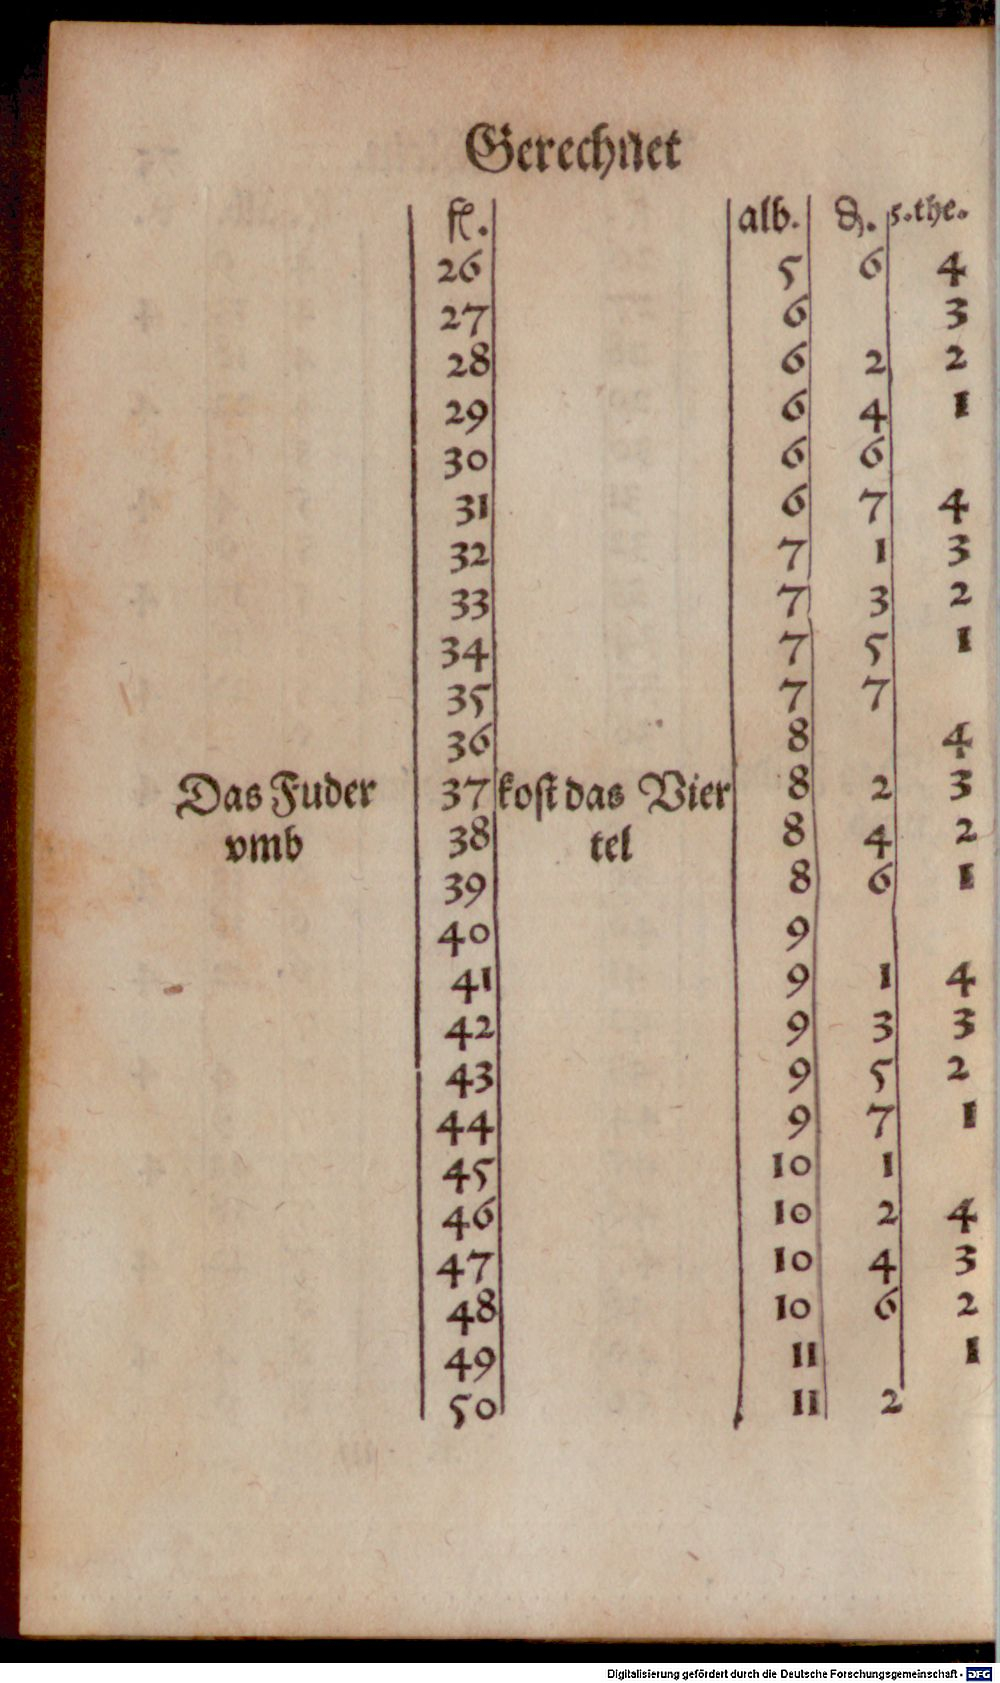 Gerechnet
fl. alb. ₰. 5.the.
26 5 6 4
27 6 3
28 6 2 2
29 6 4 1
30 6 6
31 6 7 4
32 7 1 3
33 7 3 2
34 7 5 1
35 7 7
36 8 4
Das Fuder 37 kost das Vier 8 2 3
vmb 38 tel 8 4 2
39 8 6 1
40 9
41 9 1 4
42 9 3 3
43 9 5 2
44 9 7 1
45 10 1
46 10 2 4
47 10 4 3
48 10 6 2
49 11 1
50 11 2
Digitalisierung gefördert durch die Deutsche Forschungsgemeinschaft - DFG